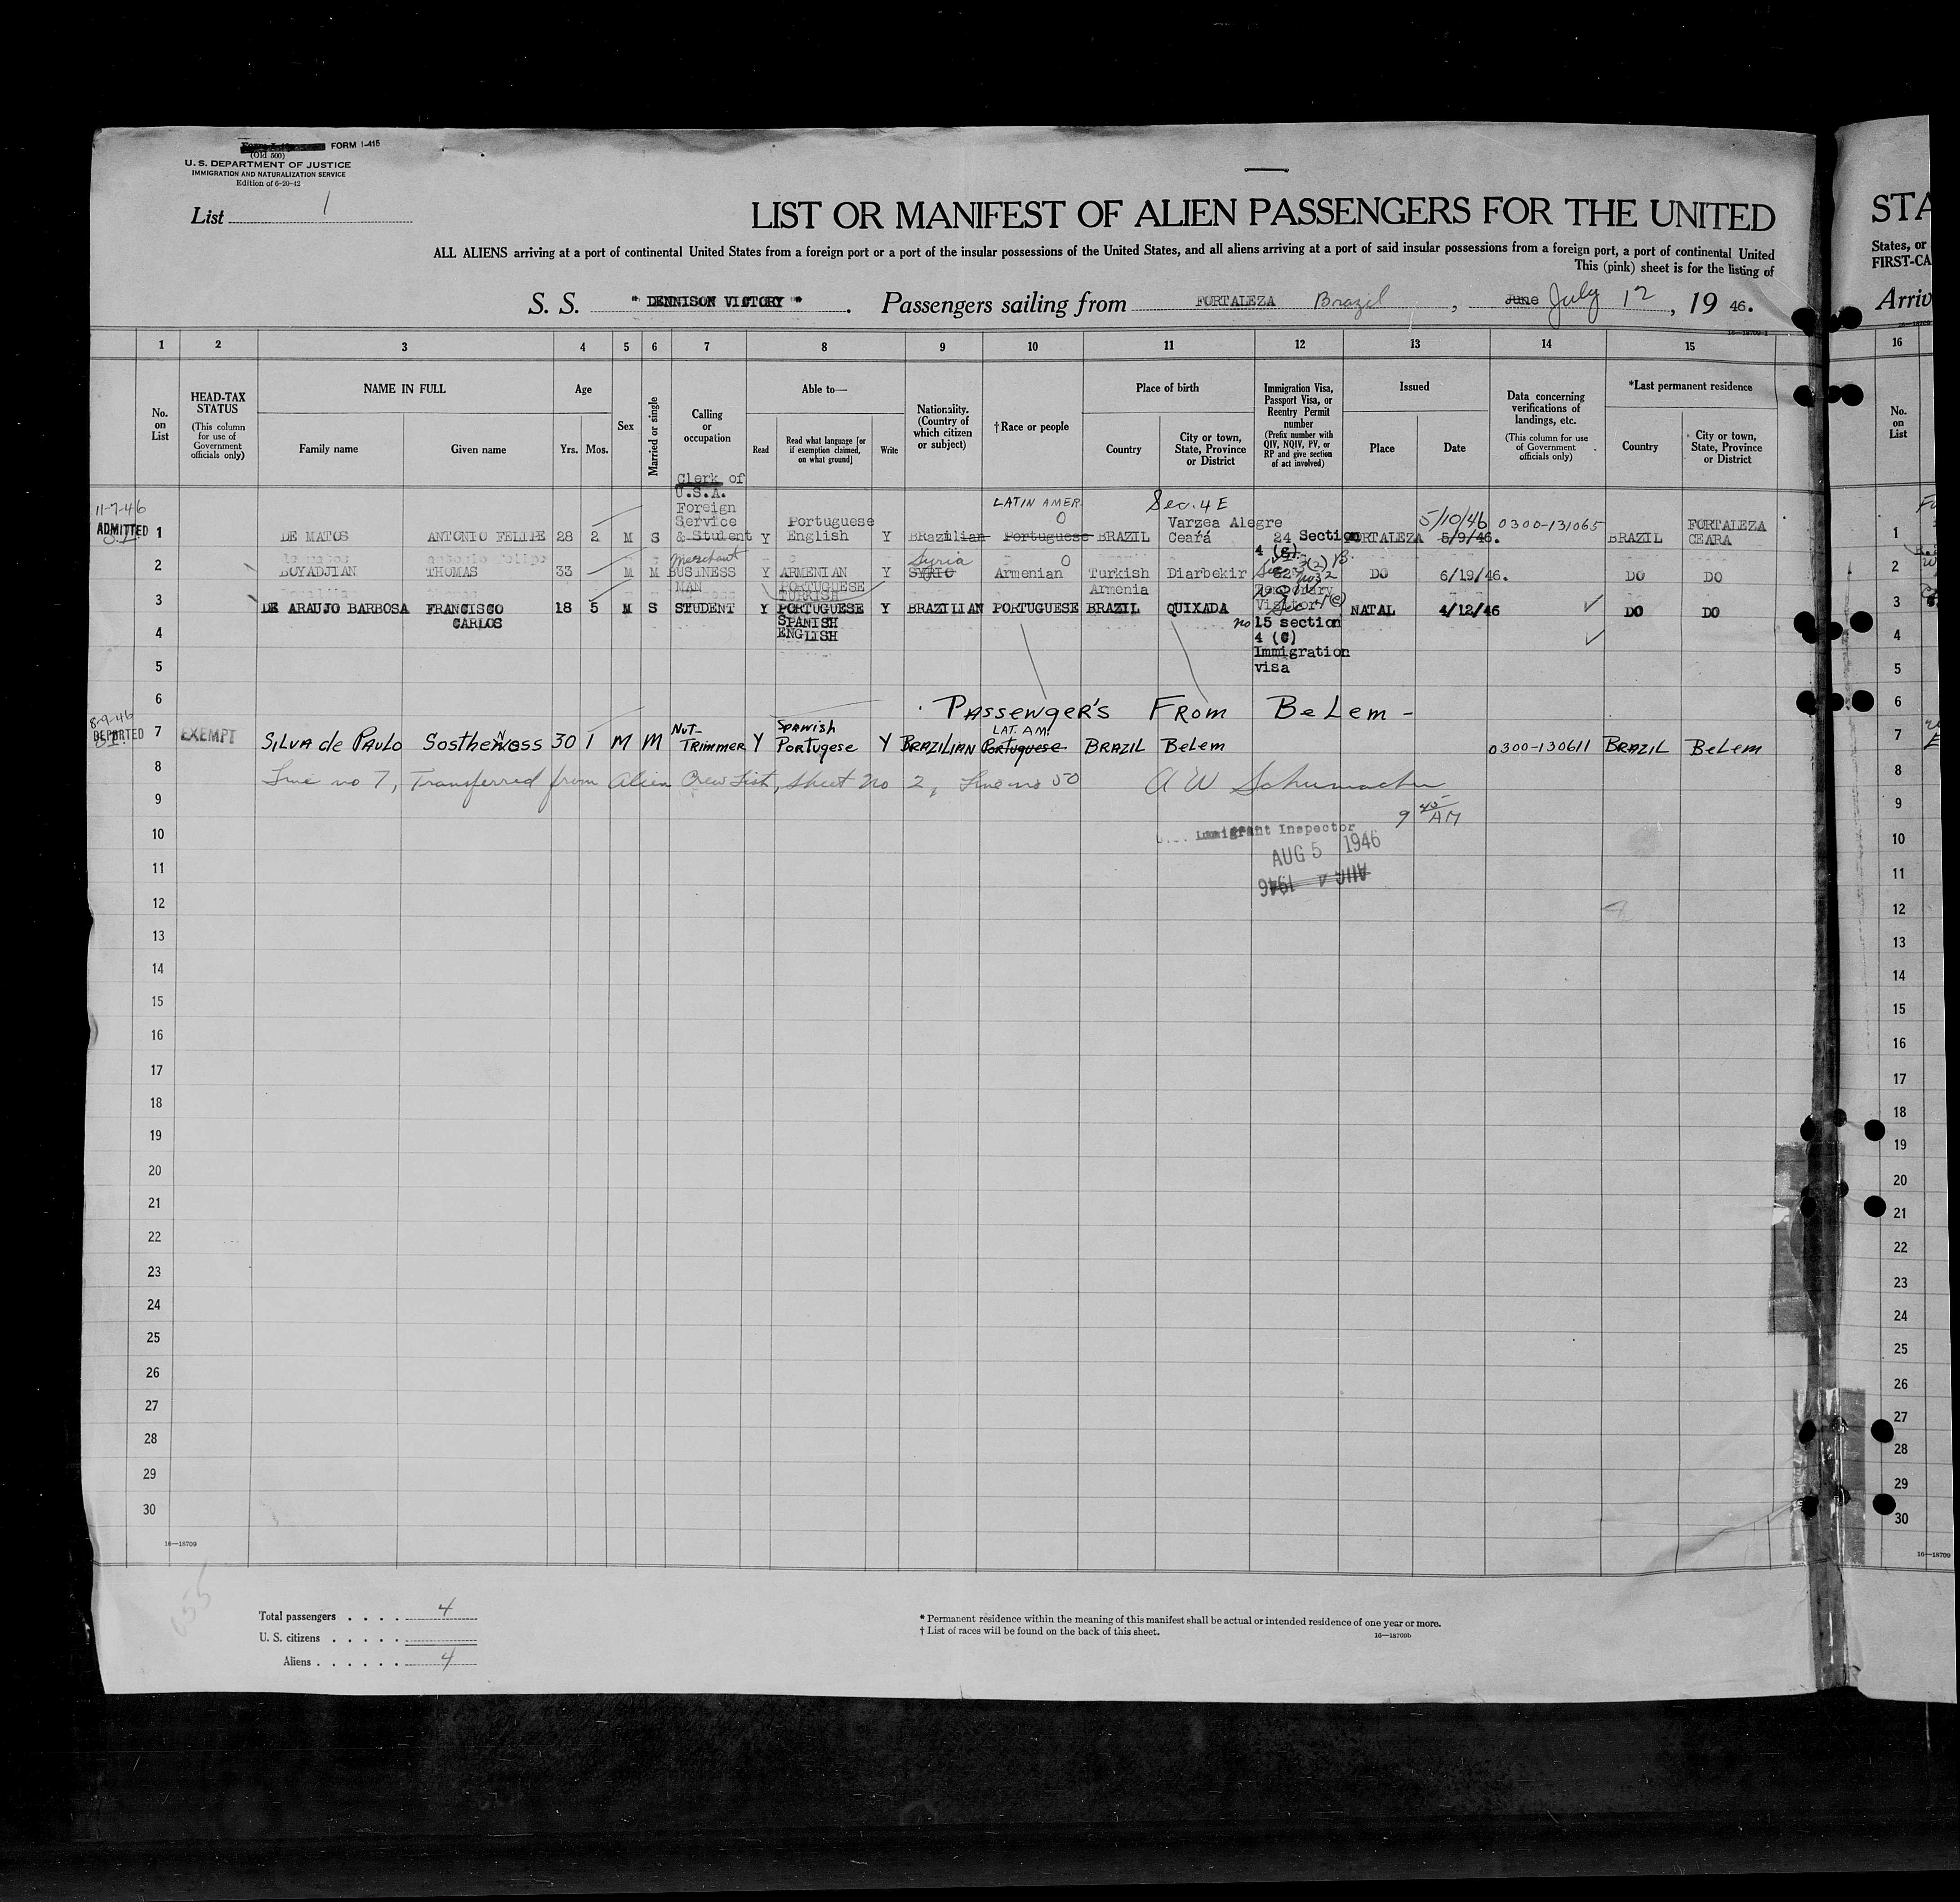 FORM I-415
(Old 500)
U. S. DEPARTMENT OF JUSTICE
IMMIGRATION AND NATURALIZATION SERVICE
Edition of 6-20-42
List 1
LIST OR MANIFEST OF ALIEN PASSENGERS FOR THE UNITED
ALL ALIENS arriving at a port of continental United States from a foreign port or a port of the insular possessions of the United States, and all aliens arriving at a port of said insular possessions from a foreign port, a port of continental United
This (pink) sheet is for the listing of
S. S. "DENNISON VICTORY". Passengers sailing from FORTALEZA Brazil, June July 12, 19 46.
STA
States, or
FIRST-CA
Arriv
1 2 3 4 5 6 7 8 9 10 11 12 13 14 15 16
No. on List
HEAD-TAX STATUS
(This column for use of Government officials only)
NAME IN FULL
Family name Given name
Age
Yrs. Mos.
Sex
Married or single
Calling or occupation
Able to—
Read Read what language [or if exemption claimed, on what ground] Write
Nationality. (Country of which citizen or subject)
†Race or people
Place of birth
Country City or town, State, Province or District
Immigration Visa, Passport Visa, or Reentry Permit number
(Prefix number with QIV, NQIV, PV, or RP and give section of act involved)
Issued
Place Date
Data concerning verifications of landings, etc.
(This column for use of Government officials only)
*Last permanent residence
Country City or town, State, Province or District
No. on List
11-7-46
ADMITTED
1 DE MATOS ANTONIO FELIPE 28 2 M S Clerk of U.S.A. Foreign Service & Student Y Portuguese English Y Brazilian LATIN AMER. Portuguese BRAZIL Sec. 4 E Varzea Alegre Ceará 24 Section 4 (e) FORTALEZA 5/10/46 5/9/46. 0300-131065 BRAZIL FORTALEZA CEARA
2 BOYADJIAN THOMAS 33 M M Merchant BUSINESS MAN Y ARMENIAN PORTUGUESE TURKISH Y Syria SYRIO Armenian Turkish Armenia Diarbekir DO 6/19/46. DO DO
3 DE ARAUJO BARBOSA FRANCISCO CARLOS 18 5 M S STUDENT Y PORTUGUESE SPANISH ENGLISH Y BRAZILIAN PORTUGUESE BRAZIL QUIXADA no 15 section 4 (C) Immigration visa NATAL 4/12/46 DO DO
4
5
6 PASSENGER'S FROM BELEM -
8-9-46
DEPARTED
7 EXEMPT SILVA de PAULO Sosthenoss 30 1 M M NUT-TRIMMER Y Spanish Portugese Y BRAZILIAN LAT. AM. Portuguese BRAZIL Belem 0300-130611 BRAZIL Belem
8 Line no 7, Transferred from Alien Crew List, sheet No 2, Line no 50 A W Schumacher
9 9 45 AM
10 Immigrant Inspector
AUG 5 1946
11 AUG 4 1946
12
13
14
15
16
17
18
19
20
21
22
23
24
25
26
27
28
29
30
16—18709
Total passengers . . . . 4
U. S. citizens . . . . .
Aliens . . . . . . 4
* Permanent residence within the meaning of this manifest shall be actual or intended residence of one year or more.
† List of races will be found on the back of this sheet.
16—18709b
16—18709